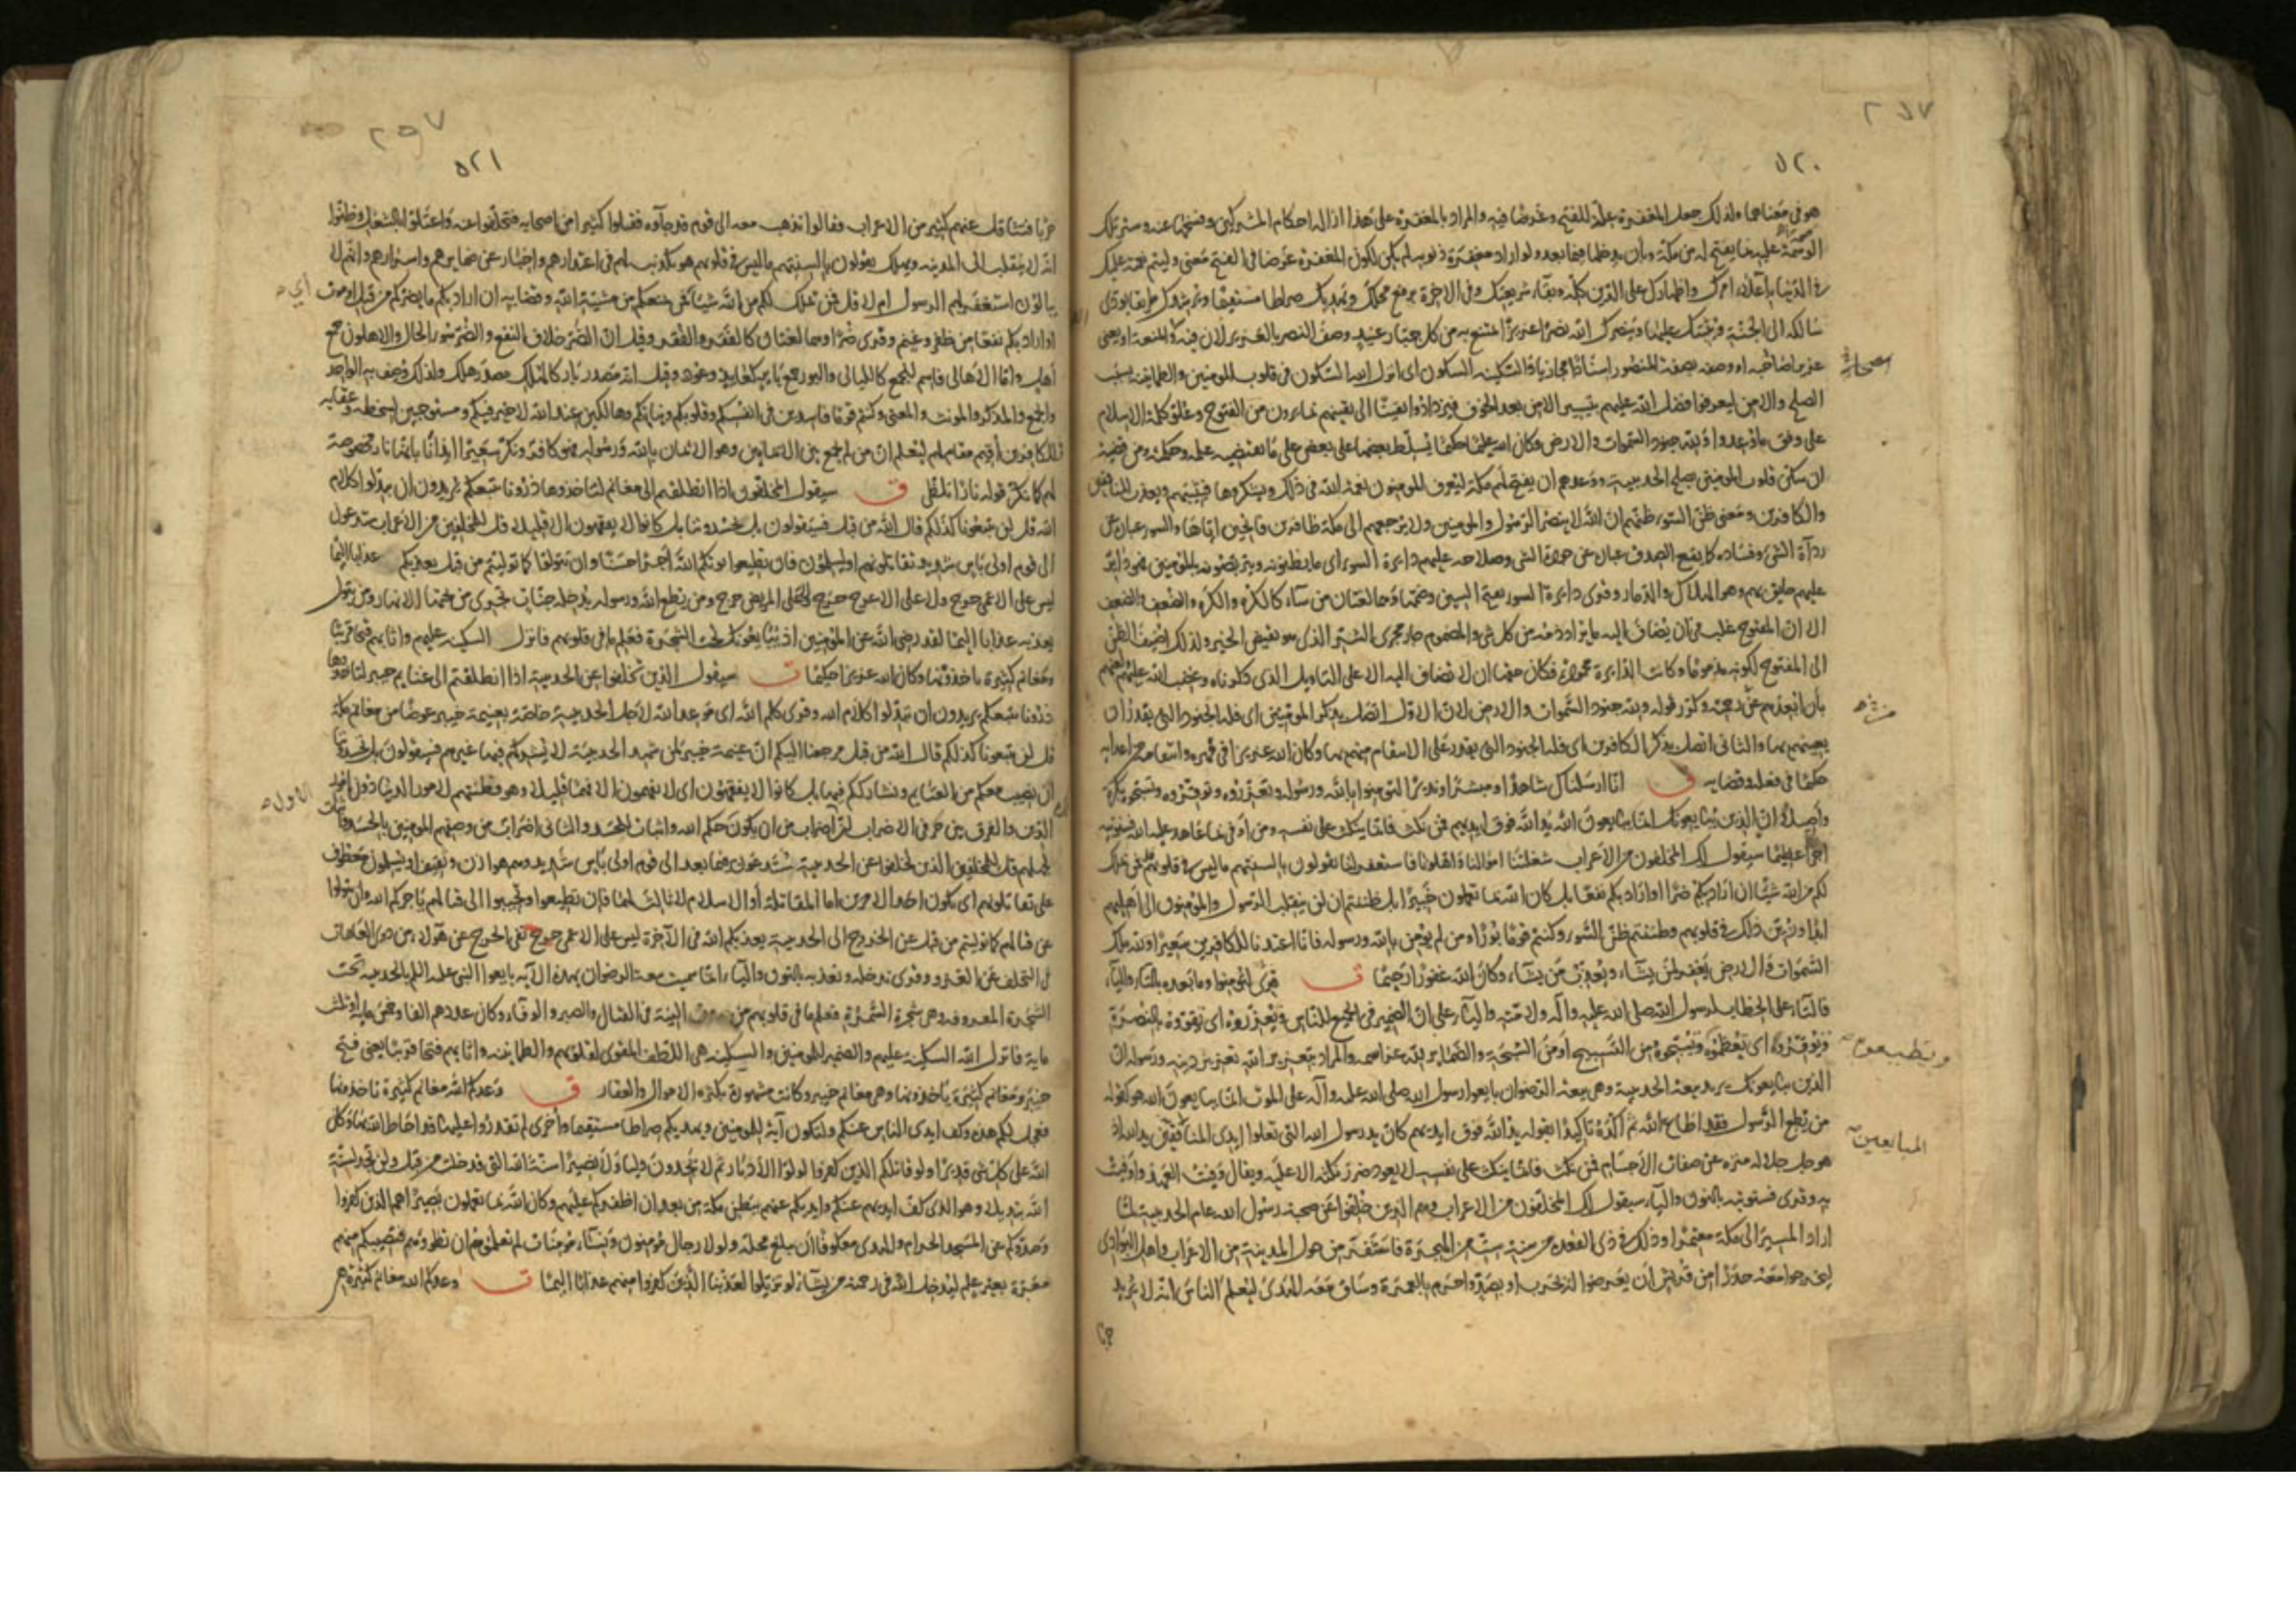 ٥٢٠
هو في معناهما ولذلك جعل المغفرة علة للفتح وغرضا فيه والمراد بالمغفرة على هذا ازالة احكام المشركين ونسخها عنه وستر تلك
الوصمة عليه بما يفتح له من مكة وبأن يدخلها فيما بعد ولو اراد مغفرة ذنوبه لم يكن لكون المغفرة غرضا في الفتح معنى وليتم نعمته عليك
في الدنيا باعلاء امرك واظهارك على الدين كله وبقاء شريعتك وفي الاخرة برفع محلك ويهديك صراطا مستقيما ويرشدك طريقا يؤدي
سالكه الى الجنة ويثبتك عليها وينصرك الله نصرا عزيزا تمتنع به من كل جبار عنيد وصف النصر بالعزيز لان فيه العز والمنعة او يعني
عزيزا صاحبه او وصفه بصفة المنصور اسنادا مجازيا والسكينة السكون اي انزل الله السكون في قلوب المومنين والطمانينة بسبب
الصلح والامن ليعرفوا فضل الله عليهم بتيسير الامن بعد الخوف فيزدادوا يقينا الى يقينهم بما يرون من الفتوح وعلو كلمة الاسلام
على وفق ما وعدوا ولله جنود السموات والارض وكان الله عليما حكيما يسلط بعضها على بعض على ما يقتضيه علمه وحكمته ومن قضيته
ان سكن قلوب المومنين بصلح الحديبية ووعدهم ان يفتح لهم مكة ليعرف المومنون نعمة الله في ذلك ويشكروها فيثيبهم ويعذب المنافقين
والكافرين ومعنى ظن السوء ظنهم ان الله لا ينصر الرسول والمومنين ولا يرجعهم الى مكة ظافرين فاتحين اياها والسوء عبارة عن
رداءة الشيء وفساده كما يقع الصدق عبارة عن جودة الشيء وصلاحه عليهم دائرة السوء اي ما يظنونه ويتربصونه بالمومنين فهو دائر
عليهم حايق بهم وهو الهلاك والدمار وقرئ دائرة السوء بفتح السين وضمها وهما لغتان من ساء كالكره والكره والضعف والضعف
الا ان المفتوح غلب في ان يضاف اليه ما يراد ذمه من كل شيء والمضموم جار مجرى الشر الذي هو نقيض الخير ولذلك اضيف الظن
الى المفتوح لكونه مذموما وكانت الدائرة محمودة فكان حقها ان لا تضاف اليه الا على التاويل الذي ذكرناه وغضب الله عليهم لعنهم
بأن ابعدهم عن رحمته وكرر قوله ولله جنود السموات والارض لان الاول اتصل بذكر المومنين اي فله الجنود التي يقدر ان
يعينهم بها والثاني اتصل بذكر الكافرين اي فله الجنود التي يقدر على الانتقام منهم بها وكان الله عزيزا في قهره وانتقامه من اعدائه
حكيما في فعله وقضايه ق انا ارسلناك شاهدا ومبشرا ونذيرا لتومنوا بالله ورسوله وتعزروه وتوقروه وتسبحوه بكرة
واصيلا ان الذين يبايعونك انما يبايعون الله يد الله فوق ايديهم فمن نكث فانما ينكث على نفسه ومن اوفى بما عاهد عليه الله فسنوتيه
اجرا عظيما سيقول لك المخلفون من الاعراب شغلتنا اموالنا واهلونا فاستغفر لنا يقولون بالسنتهم ما ليس في قلوبهم قل فمن يملك
لكم من الله شيئا ان اراد بكم ضرا او اراد بكم نفعا بل كان الله بما تعملون خبيرا بل ظننتم ان لن ينقلب الرسول والمومنون الى اهليهم
ابدا وزين ذلك في قلوبكم وظننتم ظن السوء وكنتم قوما بورا ومن لم يومن بالله ورسوله فانا اعتدنا للكافرين سعيرا ولله ملك
السموات والارض يغفر لمن يشاء ويعذب من يشاء وكان الله غفورا رحيما ق قرئ ليومنوا وما بعده بالتاء والياء
فالتاء على الخطاب لرسول الله صلى الله عليه وآله ولامته والياء على ان الضمير في الجميع للناس ويعزروه اي تقووه بالنصرة
وتوقروه اي تعظموه وتسبحوه من التسبيح او من السبحة والضمائر لله عز اسمه والمراد بتعزير الله تعزيز دينه ورسوله ان
الذين يبايعونك يريد بيعة الحديبية وهي بيعة الرضوان بايعوا رسول الله صلى الله عليه وآله على الموت انما يبايعون الله هو كقوله
من يطع الرسول فقد اطاع الله ثم اكده تاكيدا بقوله يد الله فوق ايديهم كأن يد رسول الله التي تعلوا ايدي يد الله اذ
هو جل جلاله منزه عن صفات الاجسام فمن نكث فانما ينكث على نفسه لا يعود ضرر نكثه الا عليه ويقال وفيت العهد واوفيت
به وقرئ فسنوتيه بالنون والياء سيقول لك المخلفون من الاعراب وهم الذين خلفوا عن صحبة رسول الله عام الحديبية لما
اراد المسير الى مكة معتمرا وذلك في ذي القعدة من سنة ست من الهجرة فاستنفر من حول المدينة من الاعراب واهل البوادي
ليخرجوا معه حذرا من قريش ان يعرضوا له بحرب او بصد واحرم بالعمرة وساق معه الهدي ليعلم الناس انه لا يريد
حربا
وتطيعون
المبايعين
٢٩٧
٥٢١
حربا فتثاقل عنهم كثير من الاعراب وقالوا نذهب معه الى قوم قد جاؤه فقتلوا كثيرا من اصحابه فتخلفوا عنه واعتلوا بالشغل وظنوا
انه لا ينقلب الى المدينة ويهلك يقولون بالسنتهم ما ليس في قلوبهم هو تكذيب لهم في اعتذارهم واخبار عن ضمايرهم واسرارهم وانهم لا
يبالون استغفر لهم الرسول ام لا قل فمن يملك لكم من الله شيئا فمن يمنعكم من مشية الله وقضايه ان اراد بكم ما يضركم من قتل او موت
او اراد بكم نفعا من ظفر وغنم وقرئ ضرا وهما لغتان كالفقر والفقر وقيل ان الضر خلاف النفع والضر سوء الحال والاهلون جمع
اهل واما الاهالي فاسم للجمع كالليالي والبور جمع باير كعايذ وعوذ وقيل انه مصدر بار كالهلك مصدر هلك ولذلك وصف به الواحد
والجمع والمذكر والمونث والمعنى وكنتم قوما فاسدين في انفسكم وقلوبكم ونياتكم وهالكين عند الله لا خير فيكم ومستوجبين لسخطه وعقابه
للكافرين اقيم مقام لهم ليعلم ان من لم يجمع بين الايمانين وهو الايمان بالله وبرسوله فهو كافر ونكر سعيرا ايذانا بانها نار مخصوصة
لهم كما نكر قوله نارا تلظى ق سيقول المخلفون اذا انطلقتم الى مغانم لتاخذوها ذرونا نتبعكم يريدون ان يبدلوا كلام
الله قل لن تتبعونا كذلكم قال الله من قبل فسيقولون بل تحسدوننا بل كانوا لا يفقهون الا قليلا قل للمخلفين من الاعراب ستدعون
الى قوم اولي باس شديد تقاتلونهم او يسلمون فان تطيعوا يوتكم الله اجرا حسنا وان تتولوا كما توليتم من قبل يعذبكم عذابا اليما
ليس على الاعمى حرج ولا على الاعرج حرج ولا على المريض حرج ومن يطع الله ورسوله يدخله جنات تجري من تحتها الانهار ومن يتول
يعذبه عذابا اليما لقد رضي الله عن المومنين اذ يبايعونك تحت الشجرة فعلم ما في قلوبهم فانزل السكينة عليهم واثابهم فتحا قريبا
ومغانم كثيرة ياخذونها وكان الله عزيزا حكيما ق سيقول الذين تخلفوا عن الحديبية اذا انطلقتم الى غنايم خيبر لتاخذوها
ذرونا نتبعكم يريدون ان يبدلوا كلام الله وقرئ كلم الله اي موعد الله لاهل الحديبية خاصة بغنيمة خيبر عوضا من مغانم مكة
قل لن تتبعونا كذلكم قال الله من قبل مرجعنا اليكم ان غنيمة خيبر لمن شهد الحديبية لا يشركهم فيها غيرهم فسيقولون بل تحسدوننا
ان نصيب معكم من الغنايم ونشارككم فيها بل كانوا لا يفقهون اي لا يفهمون الا فهما قليلا وهو فطنتهم لامور الدنيا دون امور
الدين والفرق بين حرفي الاضراب ان اضراب من ان يكون حكم الله واثبات الحسد والثاني اضراب من وصفهم المومنين بالحسد واثبات
لجهلهم قل للمخلفين الذين تخلفوا عن الحديبية ستدعون فيما بعد الى قوم اولي باس شديد وهم هوازن وثقيف او يسلمون معطوف
على تقاتلونهم اي يكون احد الامرين اما المقاتلة او الاسلام لا ثالث لهما فان تطيعوا وتجيبوا الى قتالهم ياجركم الله وان تتولوا
عن قتالهم كما توليتم من قبل عن الخروج الى الحديبية يعذبكم الله في الآخرة ليس على الاعمى حرج نفى الحرج عن هؤلاء من ذوي العاهات
في التخلف عن الغزو وقرئ ندخله ونعذبه بالنون والياء انما سميت بيعة الرضوان بهذه الآية بايعوا النبي عليه السلام بالحديبية تحت
الشجرة المعروفة وهي شجرة السمرة فعلم ما في قلوبهم من النية في القتال والصبر والوفاء وكان عددهم الفا وخمس ماية او ثلث
ماية فانزل الله السكينة عليهم والضمير للمومنين والسكينة هي اللطف المقوي لقلوبهم والطمانينة واثابهم فتحا قريبا يعني فتح
خيبر ومغانم كثيرة ياخذونها وهي مغانم خيبر وكانت مشهورة بكثرة الاموال والعقار ق وعدكم الله مغانم كثيرة تاخذونها
فعجل لكم هذه وكف ايدي الناس عنكم ولتكون آية للمومنين ويهديكم صراطا مستقيما واخرى لم تقدروا عليها قد احاط الله بها وكان
الله على كل شيء قديرا ولو قاتلكم الذين كفروا لولوا الادبار ثم لا يجدون وليا ولا نصيرا سنة الله التي قد خلت من قبل ولن تجد لسنة
الله تبديلا وهو الذي كف ايديهم عنكم وايديكم عنهم ببطن مكة من بعد ان اظفركم عليهم وكان الله بما تعملون بصيرا هم الذين كفروا
وصدوكم عن المسجد الحرام والهدي معكوفا ان يبلغ محله ولولا رجال مومنون ونساء مومنات لم تعلموهم ان تطؤهم فتصيبكم منهم
معرة بغير علم ليدخل الله في رحمته من يشاء لو تزيلوا لعذبنا الذين كفروا منهم عذابا اليما ق وعدكم الله مغانم كثيرة هي
اي
الاول